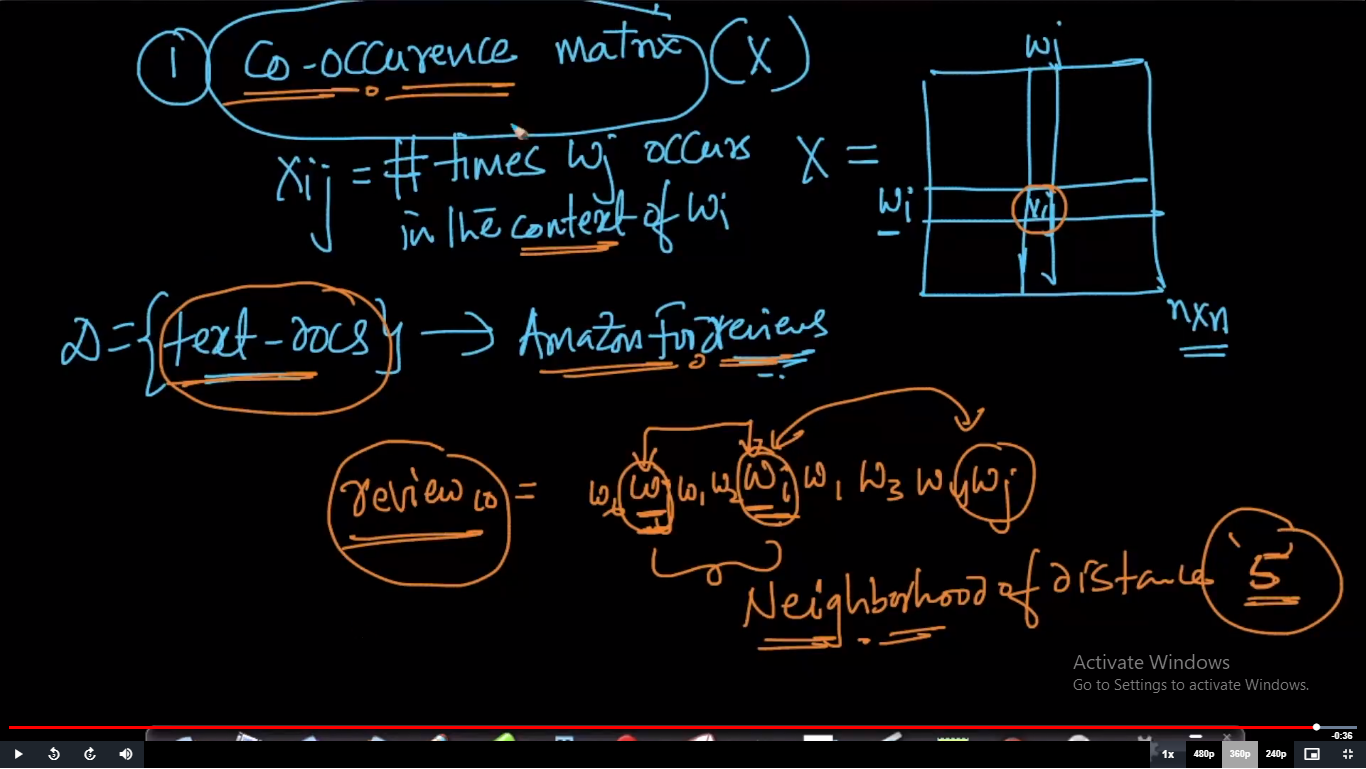 1 Co-occurence matrix (X)
wj
Xij = # times wj occurs
in the context of wi
X =
wi
Xij
nxn
D = {text-docs} → Amazon Food reviews
review10 = wj w1 w2 wi w1 w3 w4 wj
Neighborhood of distance 5
Activate Windows
Go to Settings to activate Windows.
-0:36
1x 480p 360p 240p